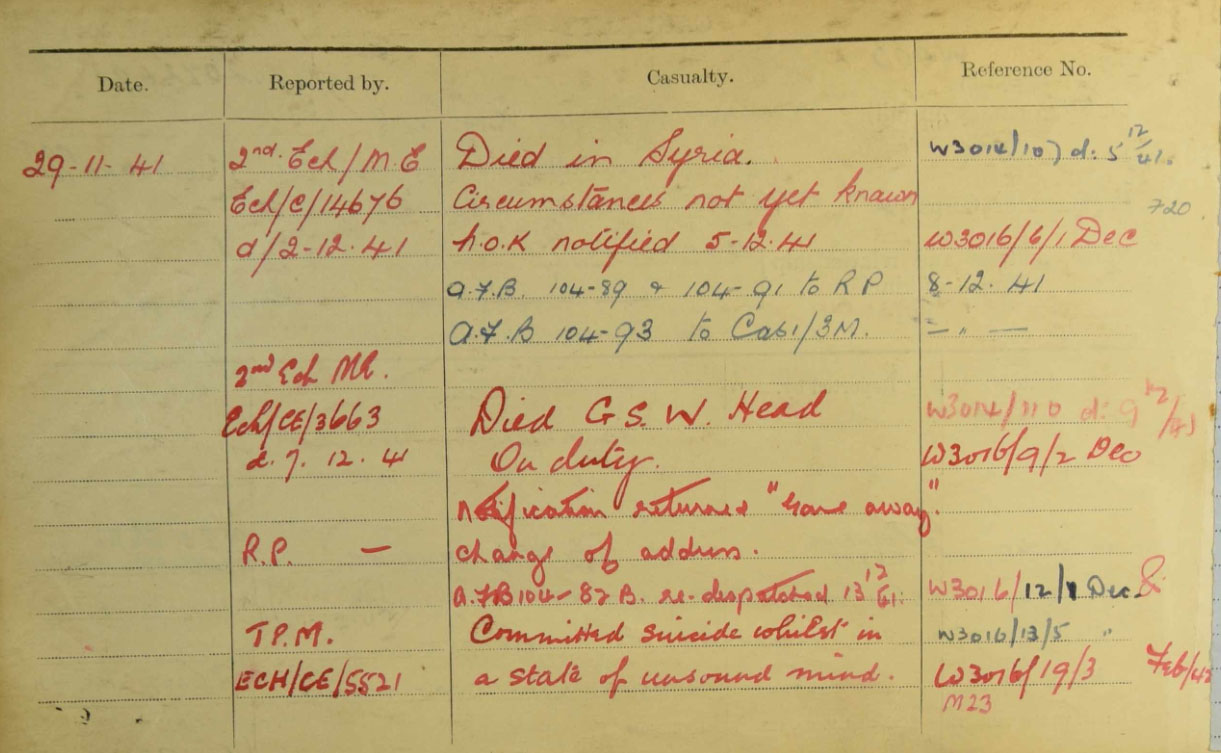 Date. Reported by. Casualty. Reference No.
29-11-41 2nd. Ech/M.E Died in Syria. W3014/107 d: 5 12/41.
Ech/C/14676 Circumstances not yet known 720
d/2-12-41 N.O.K notified 5-12-41 W3016/6/1 Dec
A.F.B. 104-89 & 104-91 to R P 8-12-41
A.F.B 104-93 to Cas1/3M. — " —
2nd Ech ME.
Ech/CE/3663 Died G.S.W. Head W3014/110 d: 9 12/41
d. 7. 12. 41 On duty. W3016/9/2 Dec
Notification returned "Gone away".
R.P. — change of address.
A.FB104-82B. re-despatched 13 12/41. W3016/12/1 Dec &
T.P.M. Committed suicide whilst in W3016/13/5 "
ECH/CE/5521 a state of unsound mind. W3016/19/3 Feb/42
M23